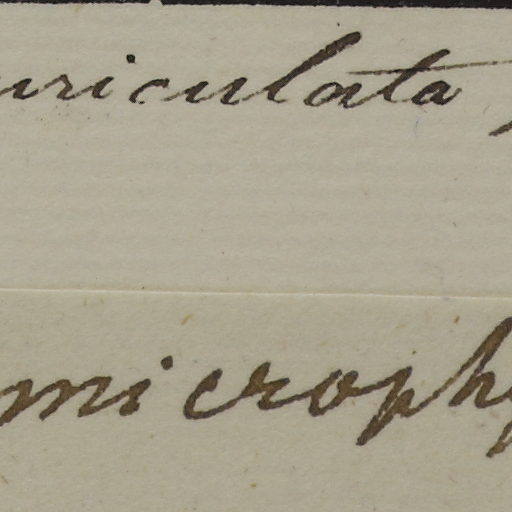 uriculata
microphy